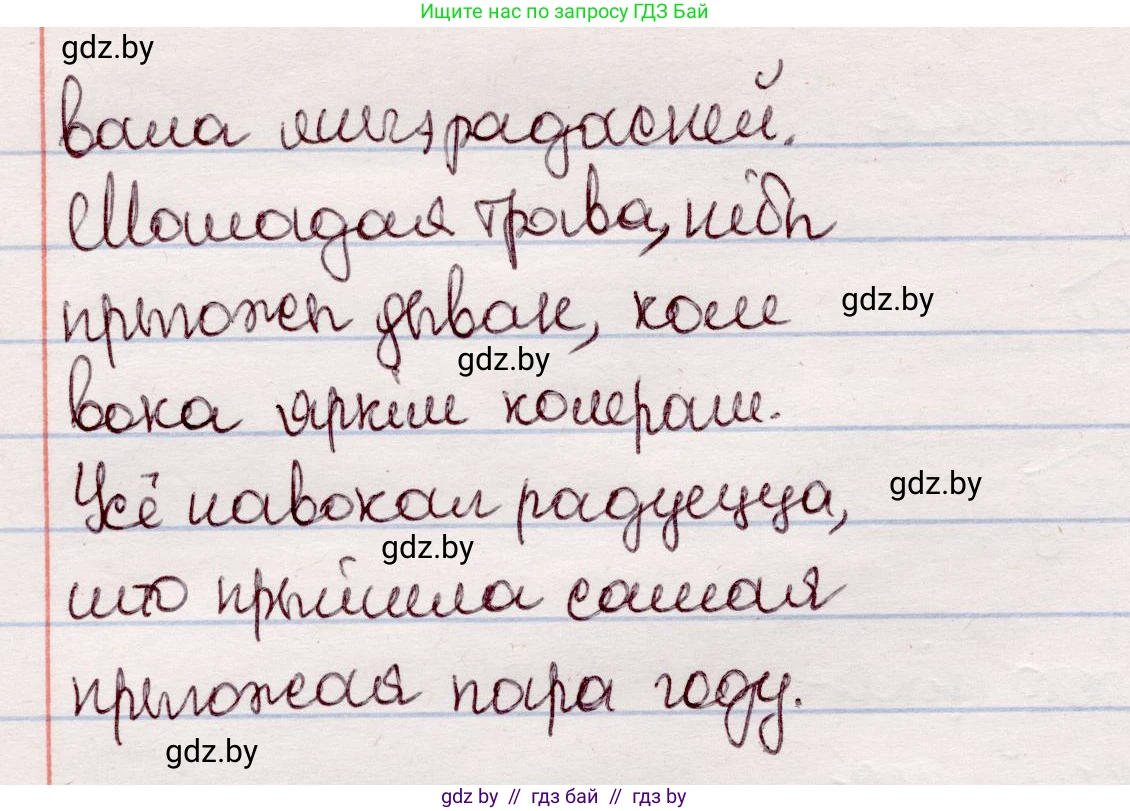 Ищите нас по запросу ГДЗ Бай
gdz.by
вала яшчэ радасней.
Маладая трава, нібы
прыгожы дыван, коле
gdz.by
gdz.by
вока яркім колерам.
Усё навокал радуецца,
gdz.by
gdz.by
што прыйшла самая
прыгожая пара году.
gdz.by
gdz by // гдз бай // гдз by